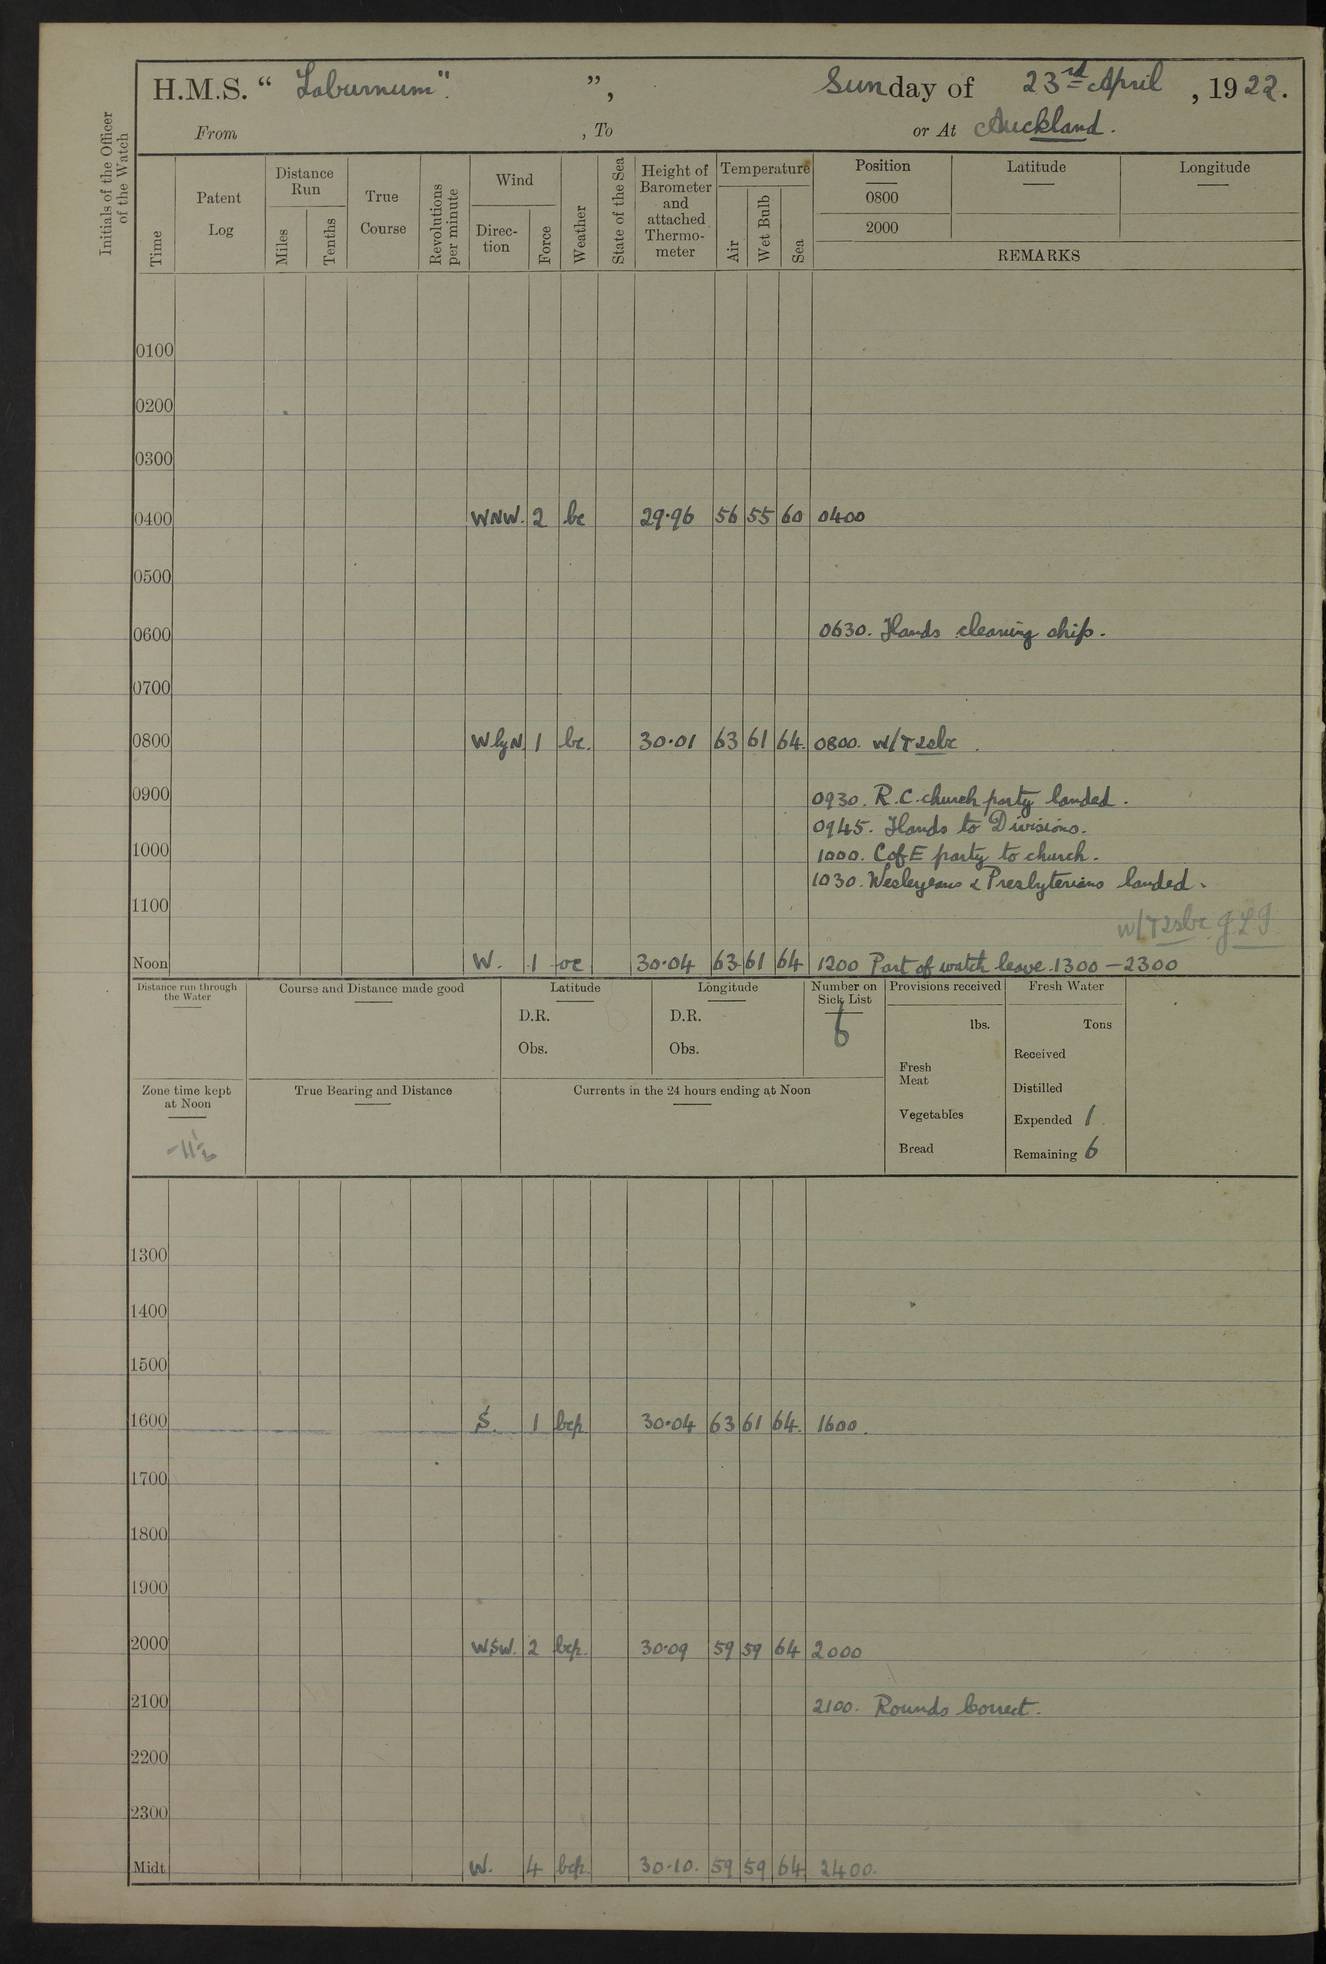 H.M.S. “ Laburnum". ”, Sunday of 23rd April , 1922.
From , To or At Auckland.
Initials of the Officer of the Watch
Time
Patent Log
Distance Run
Miles
Tenths
True Course
Revolutions per minute
Wind
Direction
Force
Weather
State of the Sea
Height of Barometer and attached Thermometer
Temperature
Air
Wet Bulb
Sea
Position Latitude Longitude
0800
2000
REMARKS
0100
0200
0300
0400 WNW. 2 bc 29.96 56 55 60 0400
0500
0600 0630. Hands cleaning ship.
0700
0800 WbyN 1 bc. 30.01 63 61 64. 0800. W/T 2sbc
0900 0930. R.C. church party landed.
0945. Hands to Divisions.
1000 1000. C of E party to church.
1030. Wesleyans & Presbyterians landed.
1100
W/T 2sbc
Noon W. 1 oc 30.04 63 61 64 1200 Part of watch leave. 1300 – 2300
Distance run through the Water
Course and Distance made good
Latitude
D.R.
Obs.
Longitude
D.R.
Obs.
Number on Sick List
6
Provisions received
lbs.
Fresh Meat
Vegetables
Bread
Fresh Water
Tons
Received
Distilled
Expended 1
Remaining 6
Zone time kept at Noon
-11½
True Bearing and Distance
Currents in the 24 hours ending at Noon
1300
1400
1500
1600 S. 1 bcp 30.04 63 61 64. 1600.
1700
1800
1900
2000 WSW. 2 bcp. 30.09 59 59 64 2000
2100 2100. Rounds Correct.
2200
2300
Midt W. 4 bcp. 30.10. 59 59 64. 2400.